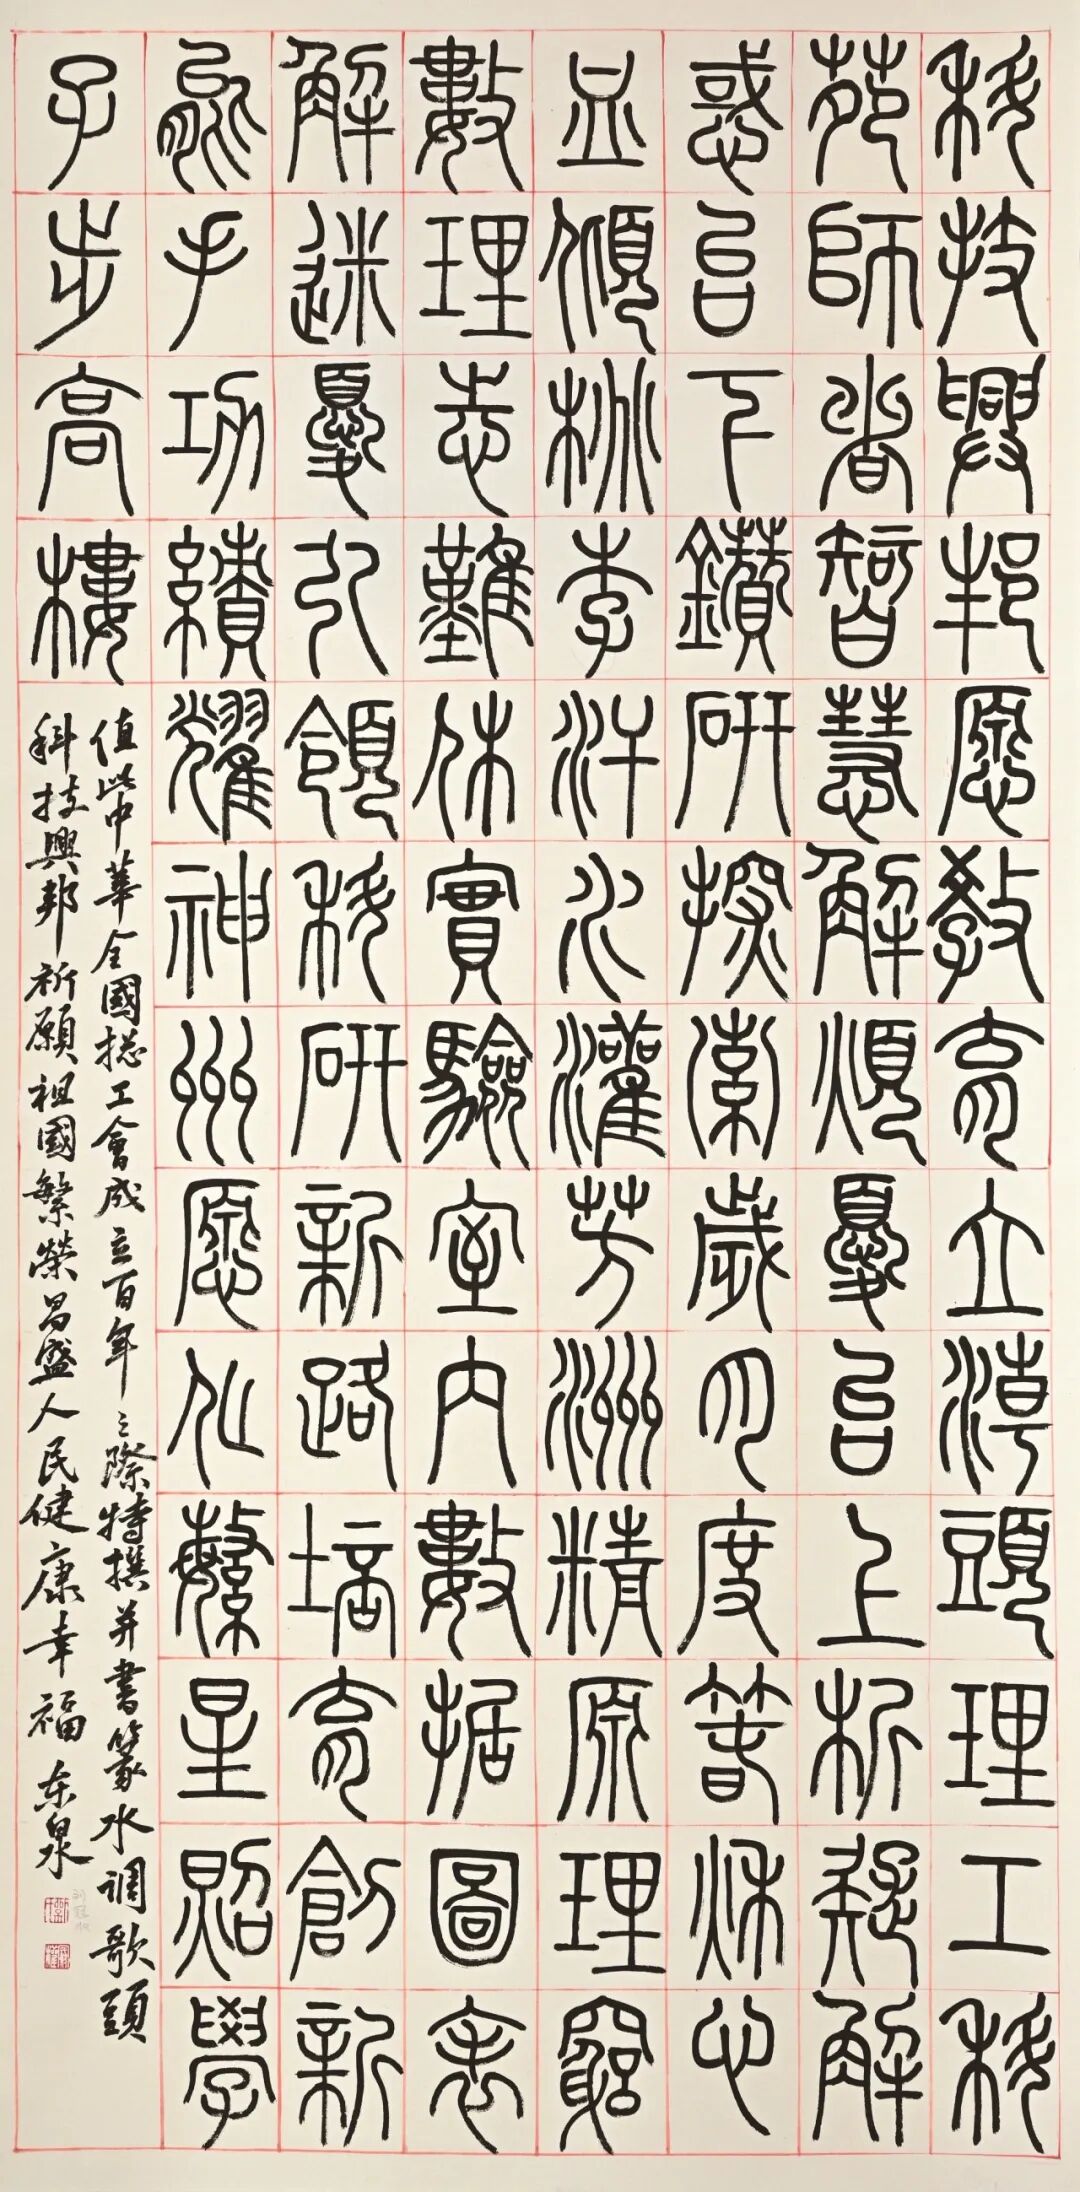 科技興邦愿教育立潮頭理工科
苑師者智慧解煩憂以上析疑解
惑以下鑽研探索歲月度春秋心
並傾桃李汗水灌芳洲精原理窮
數理志難休實驗室内數據圖表
解迷憂引領科研新路培育創新
能手功績耀神州愿化繁星照學
子步高樓
值此中華全國總工會成立百年之際特撰并書篆水調歌頭
科技興邦祈願祖國繁榮昌盛人民健康幸福东泉